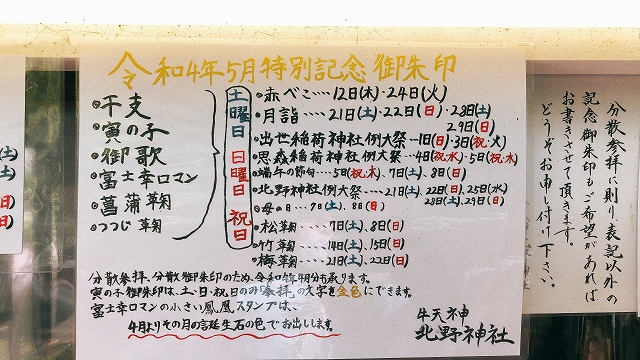 令和4年5月特別記念御朱印
・干支
・寅の子
・御歌
・富士幸ロマン
・菖蒲鞠
・つつじ鞠
土曜日 日曜日 祝日
・赤べこ…12日(木)・24日(火)
・月詣……21日(土)・22日(日)・28日(土)
29日(日)
・出世稲荷神社例大祭…1日(日)・3日(祝・火)
・思兼稲荷神社例大祭…4日(祝水)・5日(祝・木)
・端午の節句…5日(祝・木)、7日(土)、8日(日)
・北野神社例大祭……21日(土)、22日(日)、25日(水)
28日(土)、29日(日)
・母の日…7日(土)、8日(日)
・松鞠……7日(土)、8日(日)
・竹鞠……14日(土)、15日(日)
・梅鞠……21日(土)、22日(日)
分散参拝、分散御朱印のため、令和4年4月分も承ります。
寅の子御朱印は、土・日・祝日のみ「奉拝」の文字を金色にできます。
富士幸ロマンの小さい鳳凰スタンプは、
4月よりその月の誕生石の色でお出しします。
牛天神
北野神社
分散参拝に則り、表記以外の
記念御朱印もご希望があれば
お書きさせて頂きます。
どうぞお申し付け下さい。
(土)
(土)
(日)
(日)